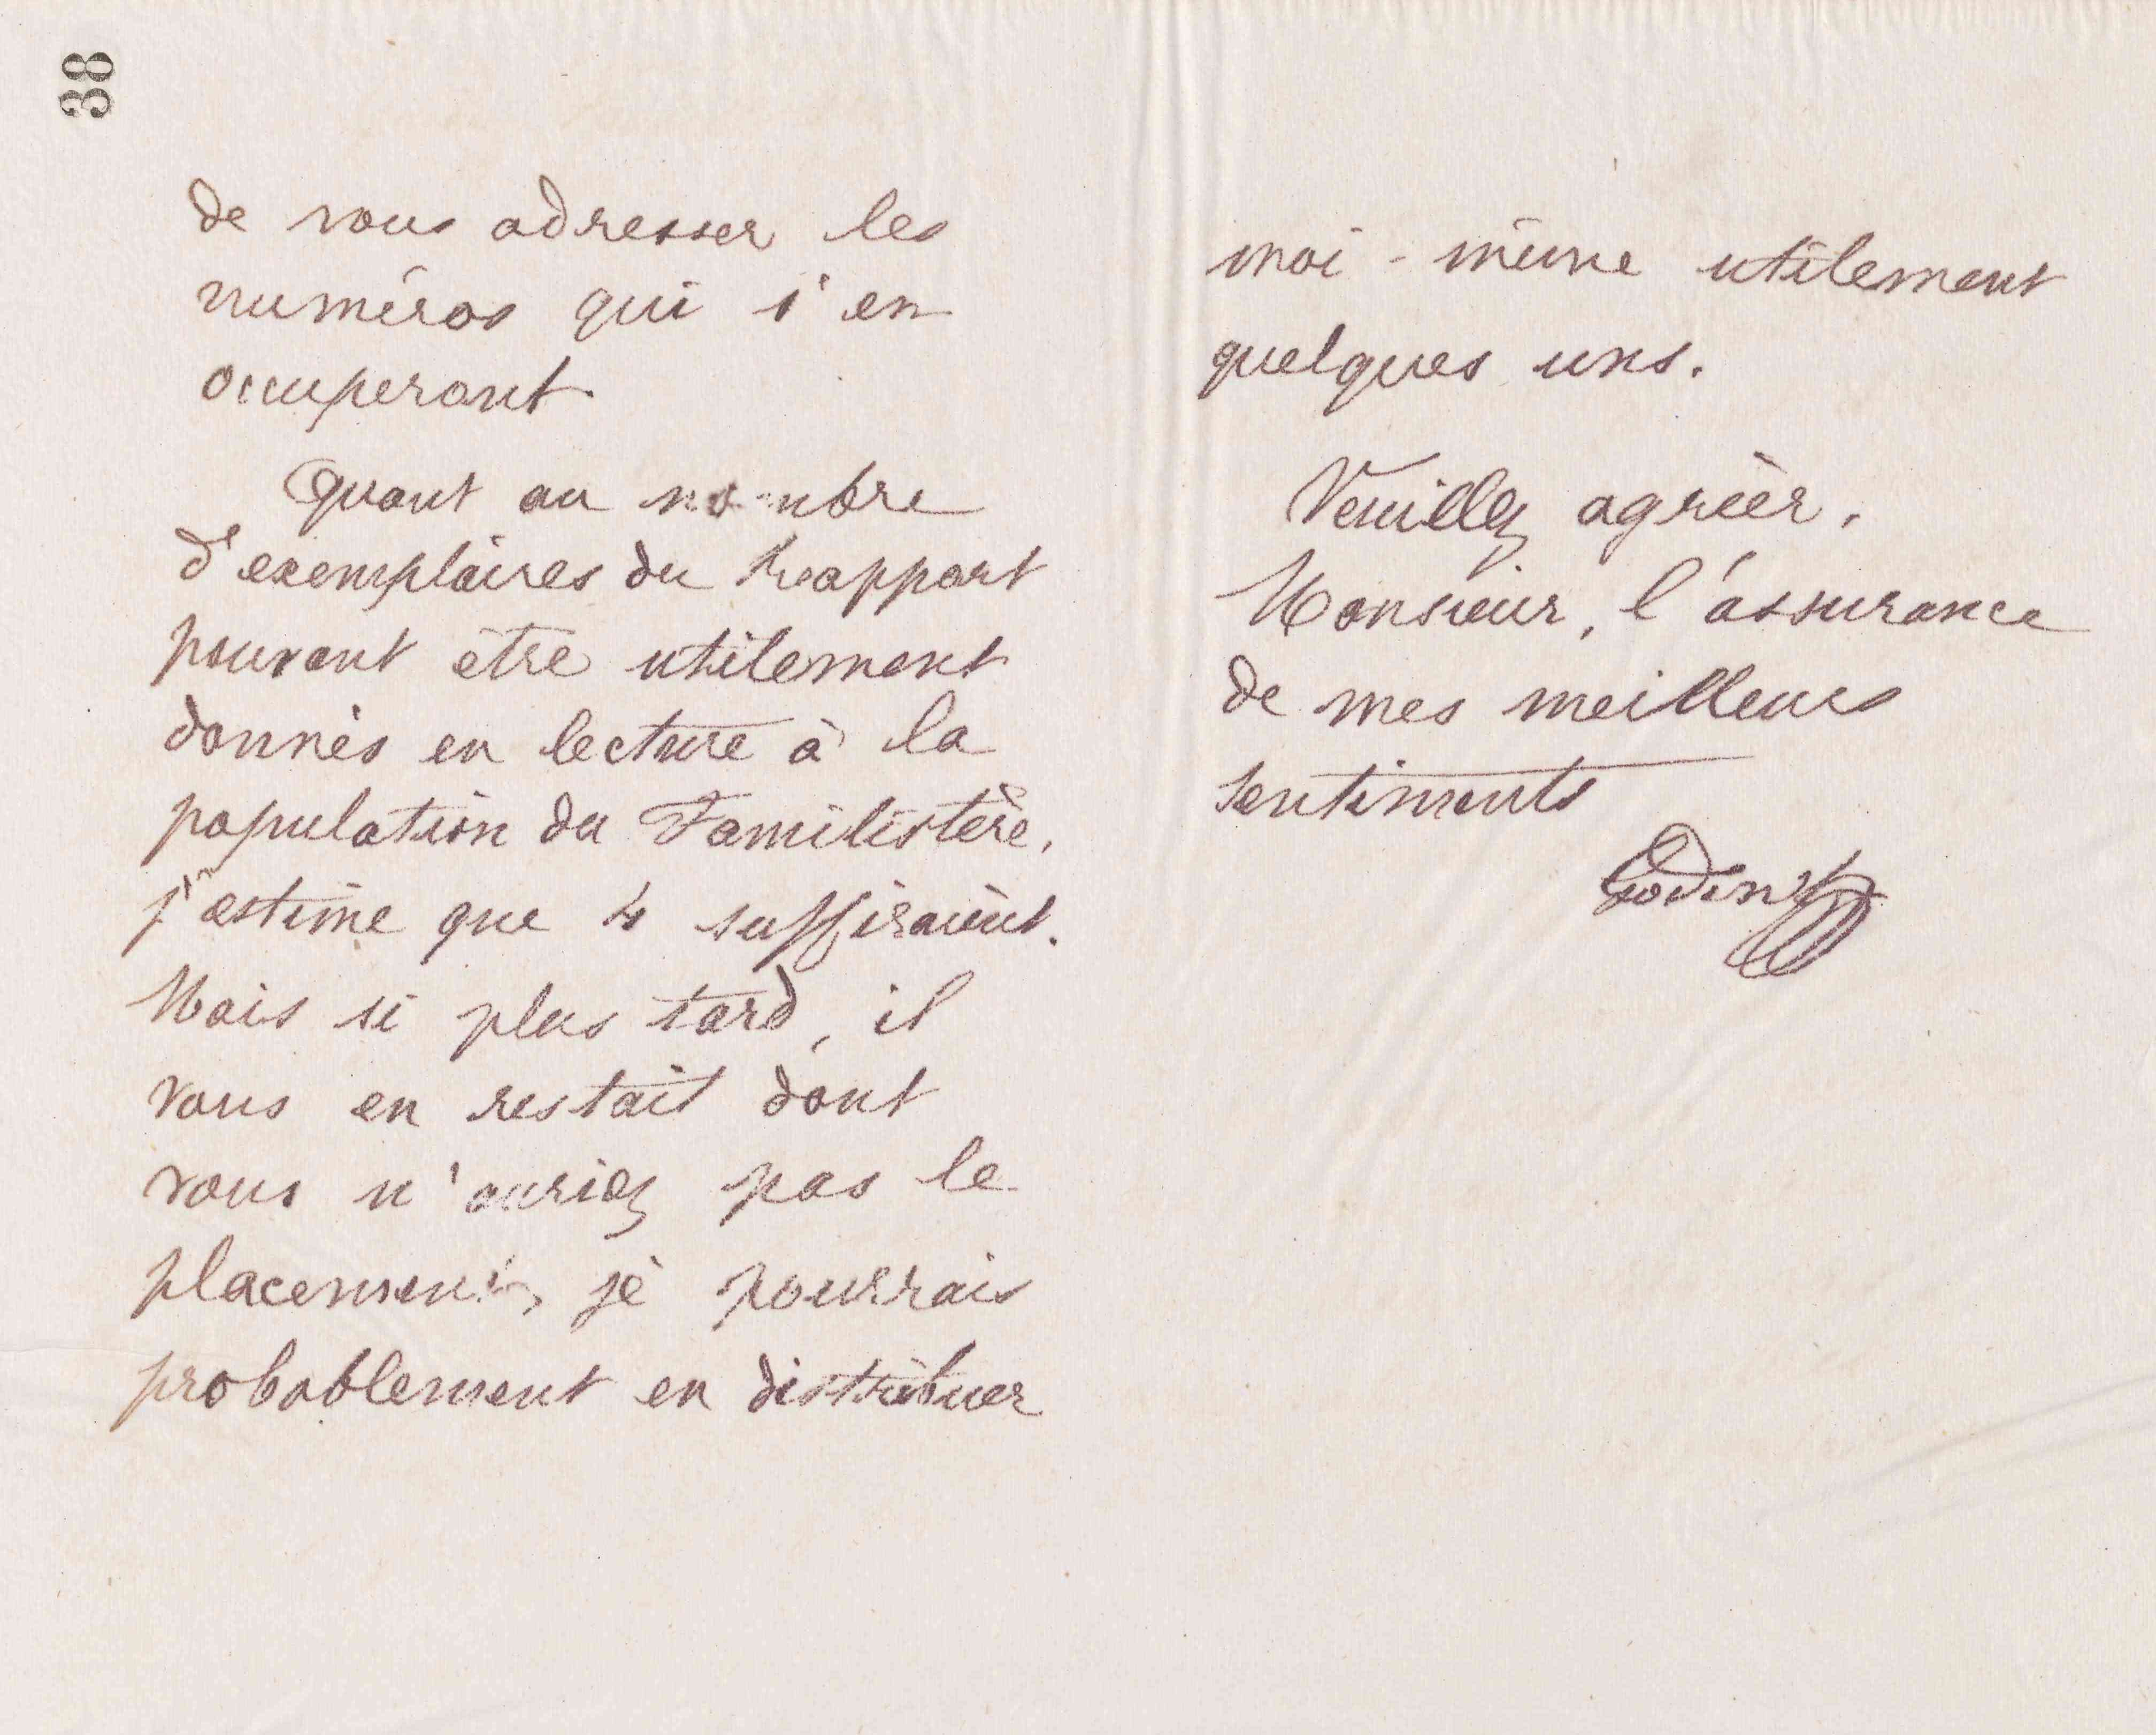 38
de vous adresser les
numéros qui s'en
occuperont.
Quant au nombre
d'exemplaires du Rapport
pouvant être utilement
donnés en lecture à la
population du Familistère,
j'estime que 4 suffiraient.
Mais si plus tard, il
vous en restait dont
vous n'auriez pas le
placement, je pourrais
probablement en distribuer
moi-même utilement
quelques uns.
Veuillez agréer,
Monsieur, l'assurance
de mes meilleurs
sentiments
Godin